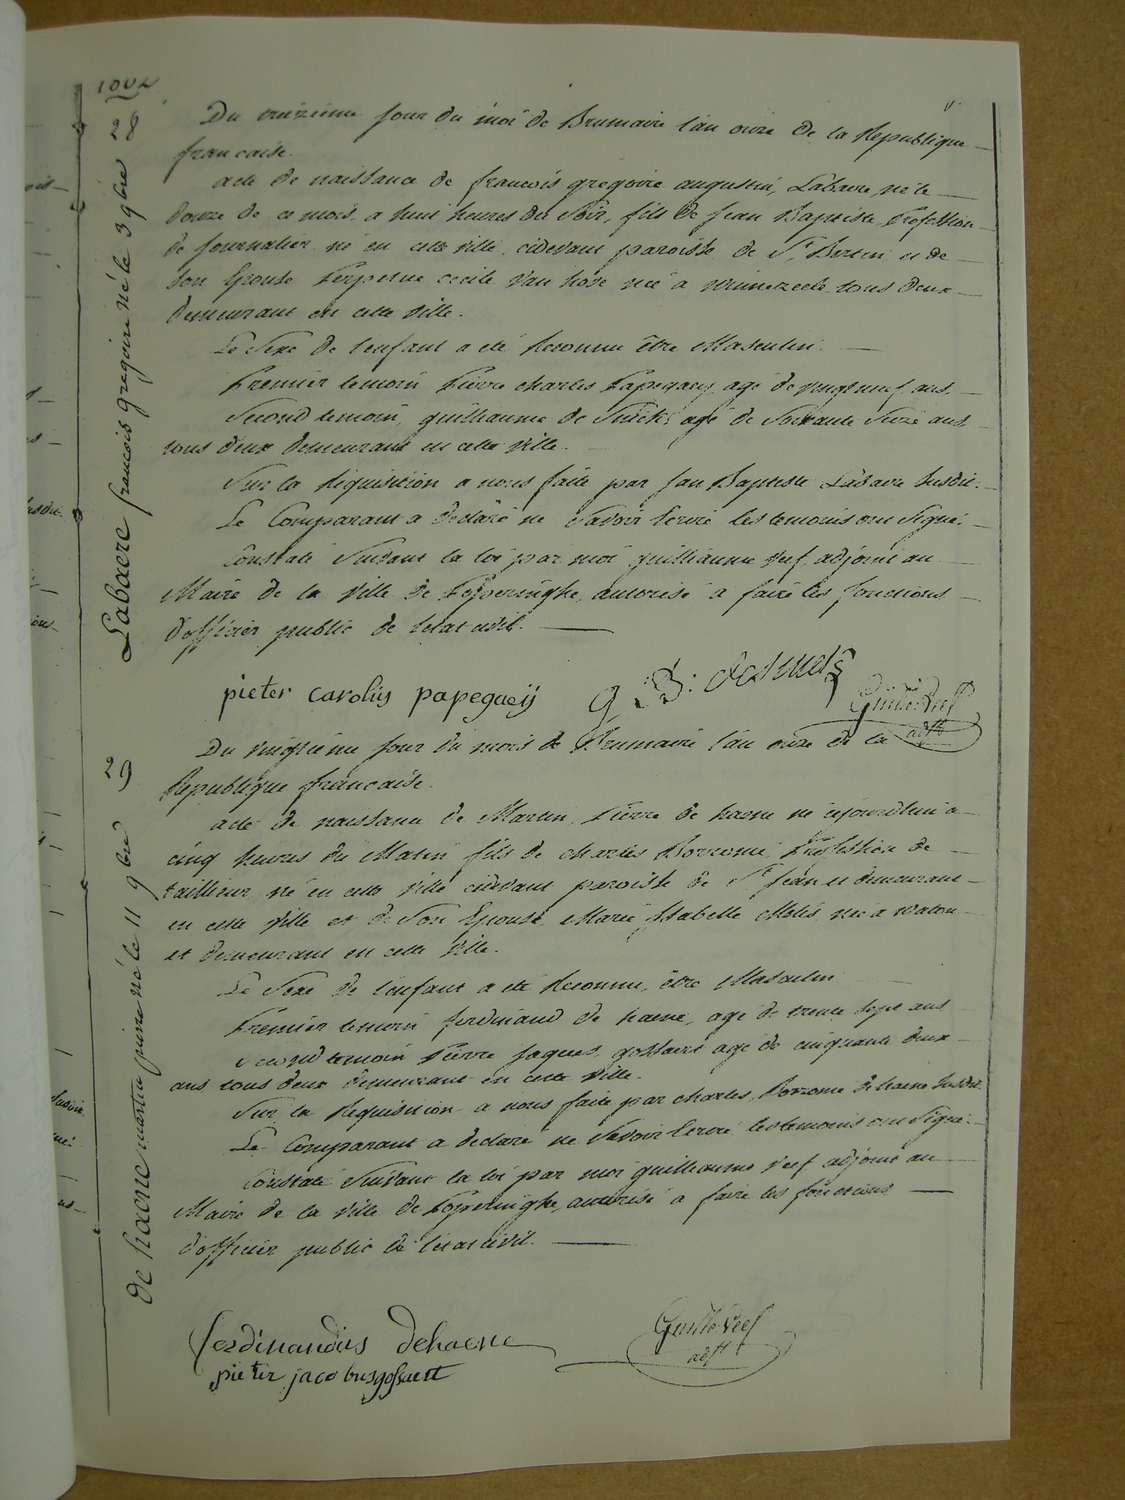 1802
28
Labaere francois gregoire né le 3 9bre
Du treizieme jour du moi de Brumaire l'an onze de la Republique
francaise.
acte de naissance de francois gregoire augustin, Labaere né le
douze de ce mois, a huit heures du Soir, fils de Jean Baptiste, profession
de journalier, né en cette ville, cidevant paroisse de St. Bertin et de
son Epouse Perpetue cecile Van hove née a tous deux
demeurant en cette ville.
Le Sexe de l'enfant a eté Reconnu être Masculin.
Premier temoin Pierre charles Papegaeij agé de vingt neuf ans,
Second temoin, guilliaume de agé de Soixante ans
tous deux demeurant en cette ville.
Sur la Requisition a nous faite par Jean Baptiste Labaere Susdit.
Le Comparant a declaré ne Savoir Ecrire les temoins ont Signé.
Constaté Suivant la loi par moi guilliaume Veef, adjoint au
Maire de la Ville de Poperinghe, autorisé a faire les fonctions
d'officier public de l'etat civil.
pieter carolus papegaeij G: B: desmedt
Guille Veef
adjt
29
de haene martin pierre né le 11 9bre
Du vingtieme jour du mois de Brumaire l'an onze de la
Republique francaise.
acte de naissance de Martin, Pierre de haene né ajourdhui a
cinq heures du Matin, fils de charles Borromé, Profession de
tailleur, né en cette ville cidevant paroisse de St. Jean et demeurant
en cette Ville et de Son Epouse, Marie Isabelle Melis, née a Watou
et demeurant en cette Ville.
Le Sexe de l'enfant a eté Reconnu, être Masculin
Premier temoin ferdinand de haene, agé de trente Sept ans
Second temoin Pierre Jaques gossaert agé de cinquante deux
ans tous deux demeurant en cette Ville.
Sur la Requisition a nous faite par charles, Borromé de haene Susdit.
Le Comparant a declaré ne Savoir Ecrire les temoins ont Signé.
Constaté Suivant la loi par moi guilliaume Veef adjoint au
Maire de la Ville de Poperinghe, autorisé a faire les fonctions
d'officier public de l'etat civil.
ferdinandus dehaene
Guille Veef
adjt
pieter jacobus gossaert